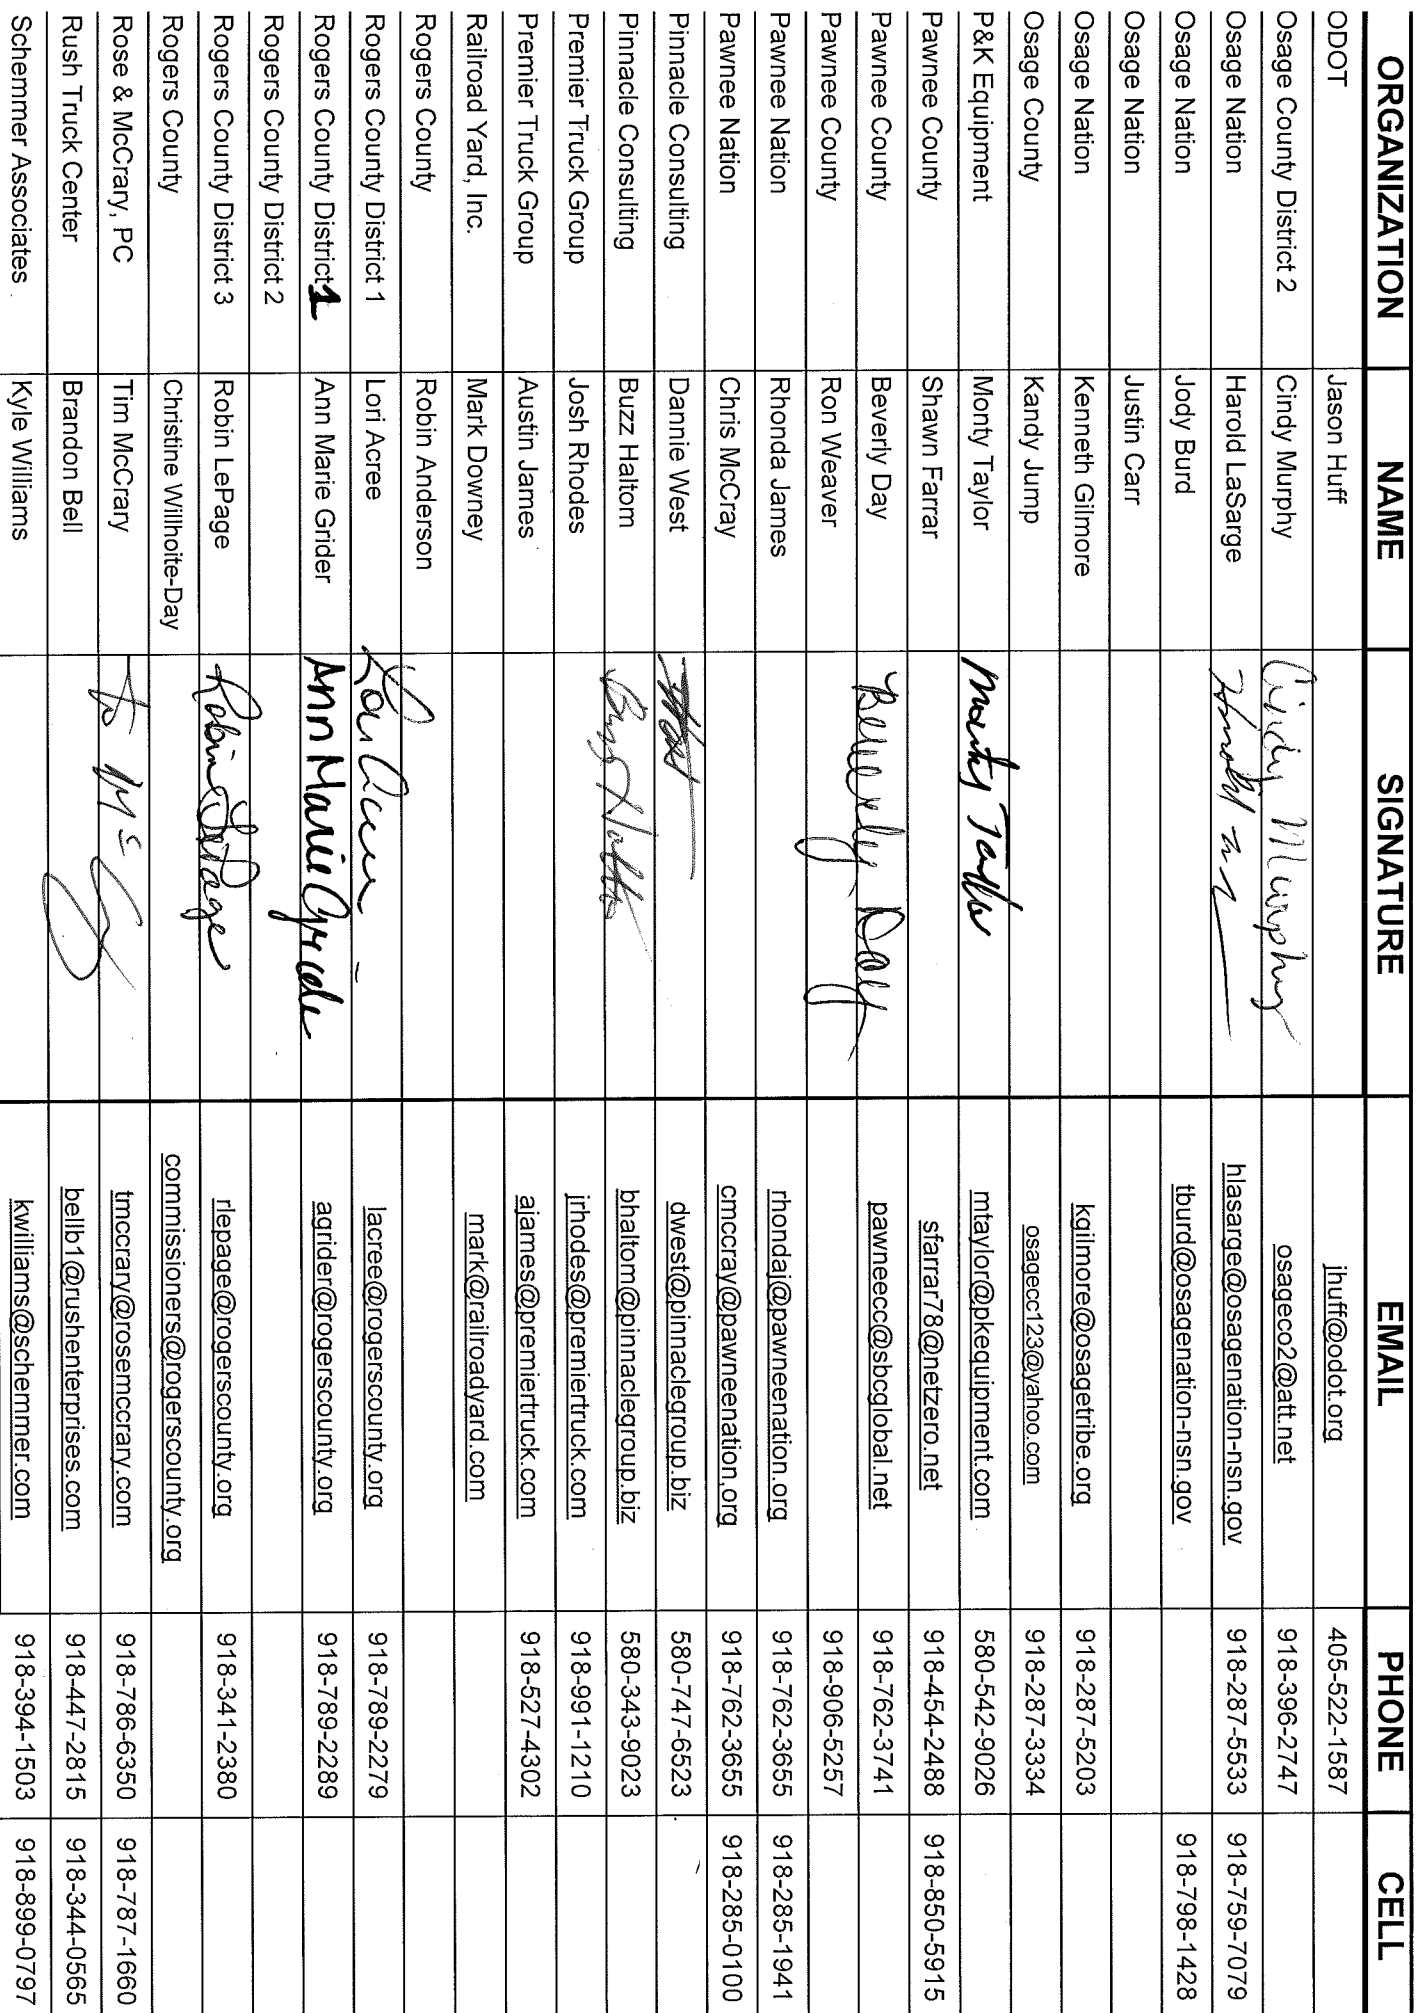 ORGANIZATION NAME SIGNATURE EMAIL PHONE CELL
ODOT Jason Huff jhuff@odot.org 405-522-1587
Osage County District 2 Cindy Murphy Cindy Murphy osageco2@att.net 918-396-2747
Osage Nation Harold LaSarge hlasarge@osagenation-nsn.gov 918-287-5533 918-759-7079
Osage Nation Jody Burd tburd@osagenation-nsn.gov 918-798-1428
Osage Nation Justin Carr
Osage Nation Kenneth Gilmore kgilmore@osagetribe.org 918-287-5203
Osage County Kandy Jump osagecc123@yahoo.com 918-287-3334
P&K Equipment Monty Taylor Monty Taylor mtaylor@pkequipment.com 580-542-9026
Pawnee County Shawn Farrar sfarrar78@netzero.net 918-454-2488 918-850-5915
Pawnee County Beverly Day Beverly Day pawneecc@sbcglobal.net 918-762-3741
Pawnee County Ron Weaver 918-906-5257
Pawnee Nation Rhonda James rhondaj@pawneenation.org 918-762-3655 918-285-1941
Pawnee Nation Chris McCray cmccray@pawneenation.org 918-762-3655 918-285-0100
Pinnacle Consulting Dannie West dwest@pinnaclegroup.biz 580-747-6523
Pinnacle Consulting Buzz Haltom Buzz Haltom bhaltom@pinnaclegroup.biz 580-343-9023
Premier Truck Group Josh Rhodes jrhodes@premiertruck.com 918-991-1210
Premier Truck Group Austin James ajames@premiertruck.com 918-527-4302
Railroad Yard, Inc. Mark Downey mark@railroadyard.com
Rogers County Robin Anderson
Rogers County District 1 Lori Acree Lori Acree lacree@rogerscounty.org 918-789-2279
Rogers County District 1 Ann Marie Grider Ann Marie Grider agrider@rogerscounty.org 918-789-2289
Rogers County District 2
Rogers County District 3 Robin LePage Robin LePage rlepage@rogerscounty.org 918-341-2380
Rogers County Christine Willhoite-Day commissioners@rogerscounty.org
Rose & McCrary, PC Tim McCrary tmccrary@rosemccrary.com 918-786-6350 918-787-1660
Rush Truck Center Brandon Bell bellb1@rushenterprises.com 918-447-2815 918-344-0565
Schemmer Associates Kyle Williams kwilliams@schemmer.com 918-394-1503 918-899-0797